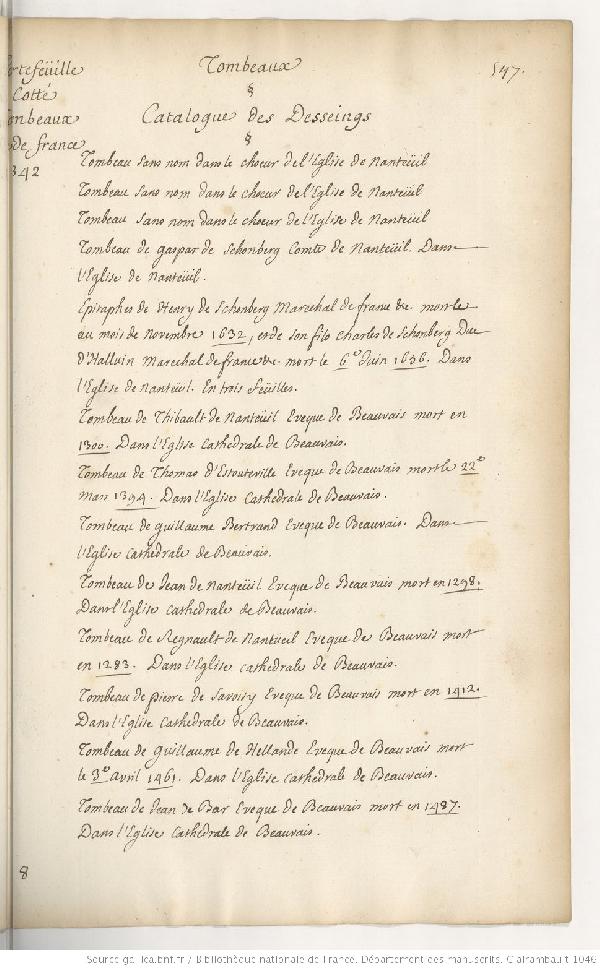 Tombeaux
547.
ortefeüille
Cotté
ombeaux
de france
342
§
Catalogue des Desseings
§
Tombeau sans nom dans le choeur de l'Eglise de Nanteüil
Tombeau sans nom dans le choeur de l'Eglise de Nanteüil
Tombeau sans nom dans le choeur de l'Eglise de Nanteüil
Tombeau de gaspar de Schonberg Comte de Nanteüil. Dans
l'Eglise de Nanteüil.
Epitaphes de Henry de Schonberg Marechal de france &c. mort le
au mois de Novembre 1632, et de son fils Charles de Schonberg Duc
d'Halluin Marechal de france &c. mort le 6e Juin 1656. Dans
l'Eglise de Nanteüil. En trois feüilles.
Tombeau de Thibault de Nanteüil Eveque de Beauvais mort en
1300. Dans l'Eglise Cathedrale de Beauvais.
Tombeau de Thomas d'Estouteville Eveque de Beauvais mort le 22e
Mars 1394. Dans l'Eglise Cathedrale de Beauvais.
Tombeau de guillaume Bertrand Eveque de Beauvais. Dans
l'Eglise Cathedrale de Beauvais.
Tombeau de Jean de Nanteüil Eveque de Beauvais mort en 1298.
Dans l'Eglise Cathedrale de Beauvais.
Tombeau de Regnault de Nanteuil Eveque de Beauvais mort
en 1283. Dans l'Eglise cathedrale de Beauvais.
Tombeau de pierre de Savoisy Eveque de Beauvais mort en 1412.
Dans l'Eglise Cathedrale de Beauvais.
Tombeau de guillaume de Hellande Eveque de Beauvais mort
le 3e avril 1461. Dans l'Eglise Cathedrale de Beauvais.
Tombeau de Jean de Bar Eveque de Beauvais mort en 1487.
Dans l'Eglise Cathedrale de Beauvais.
8
Source gallica.bnf.fr / Bibliothèque nationale de France. Département des manuscrits. Clairambault 1046